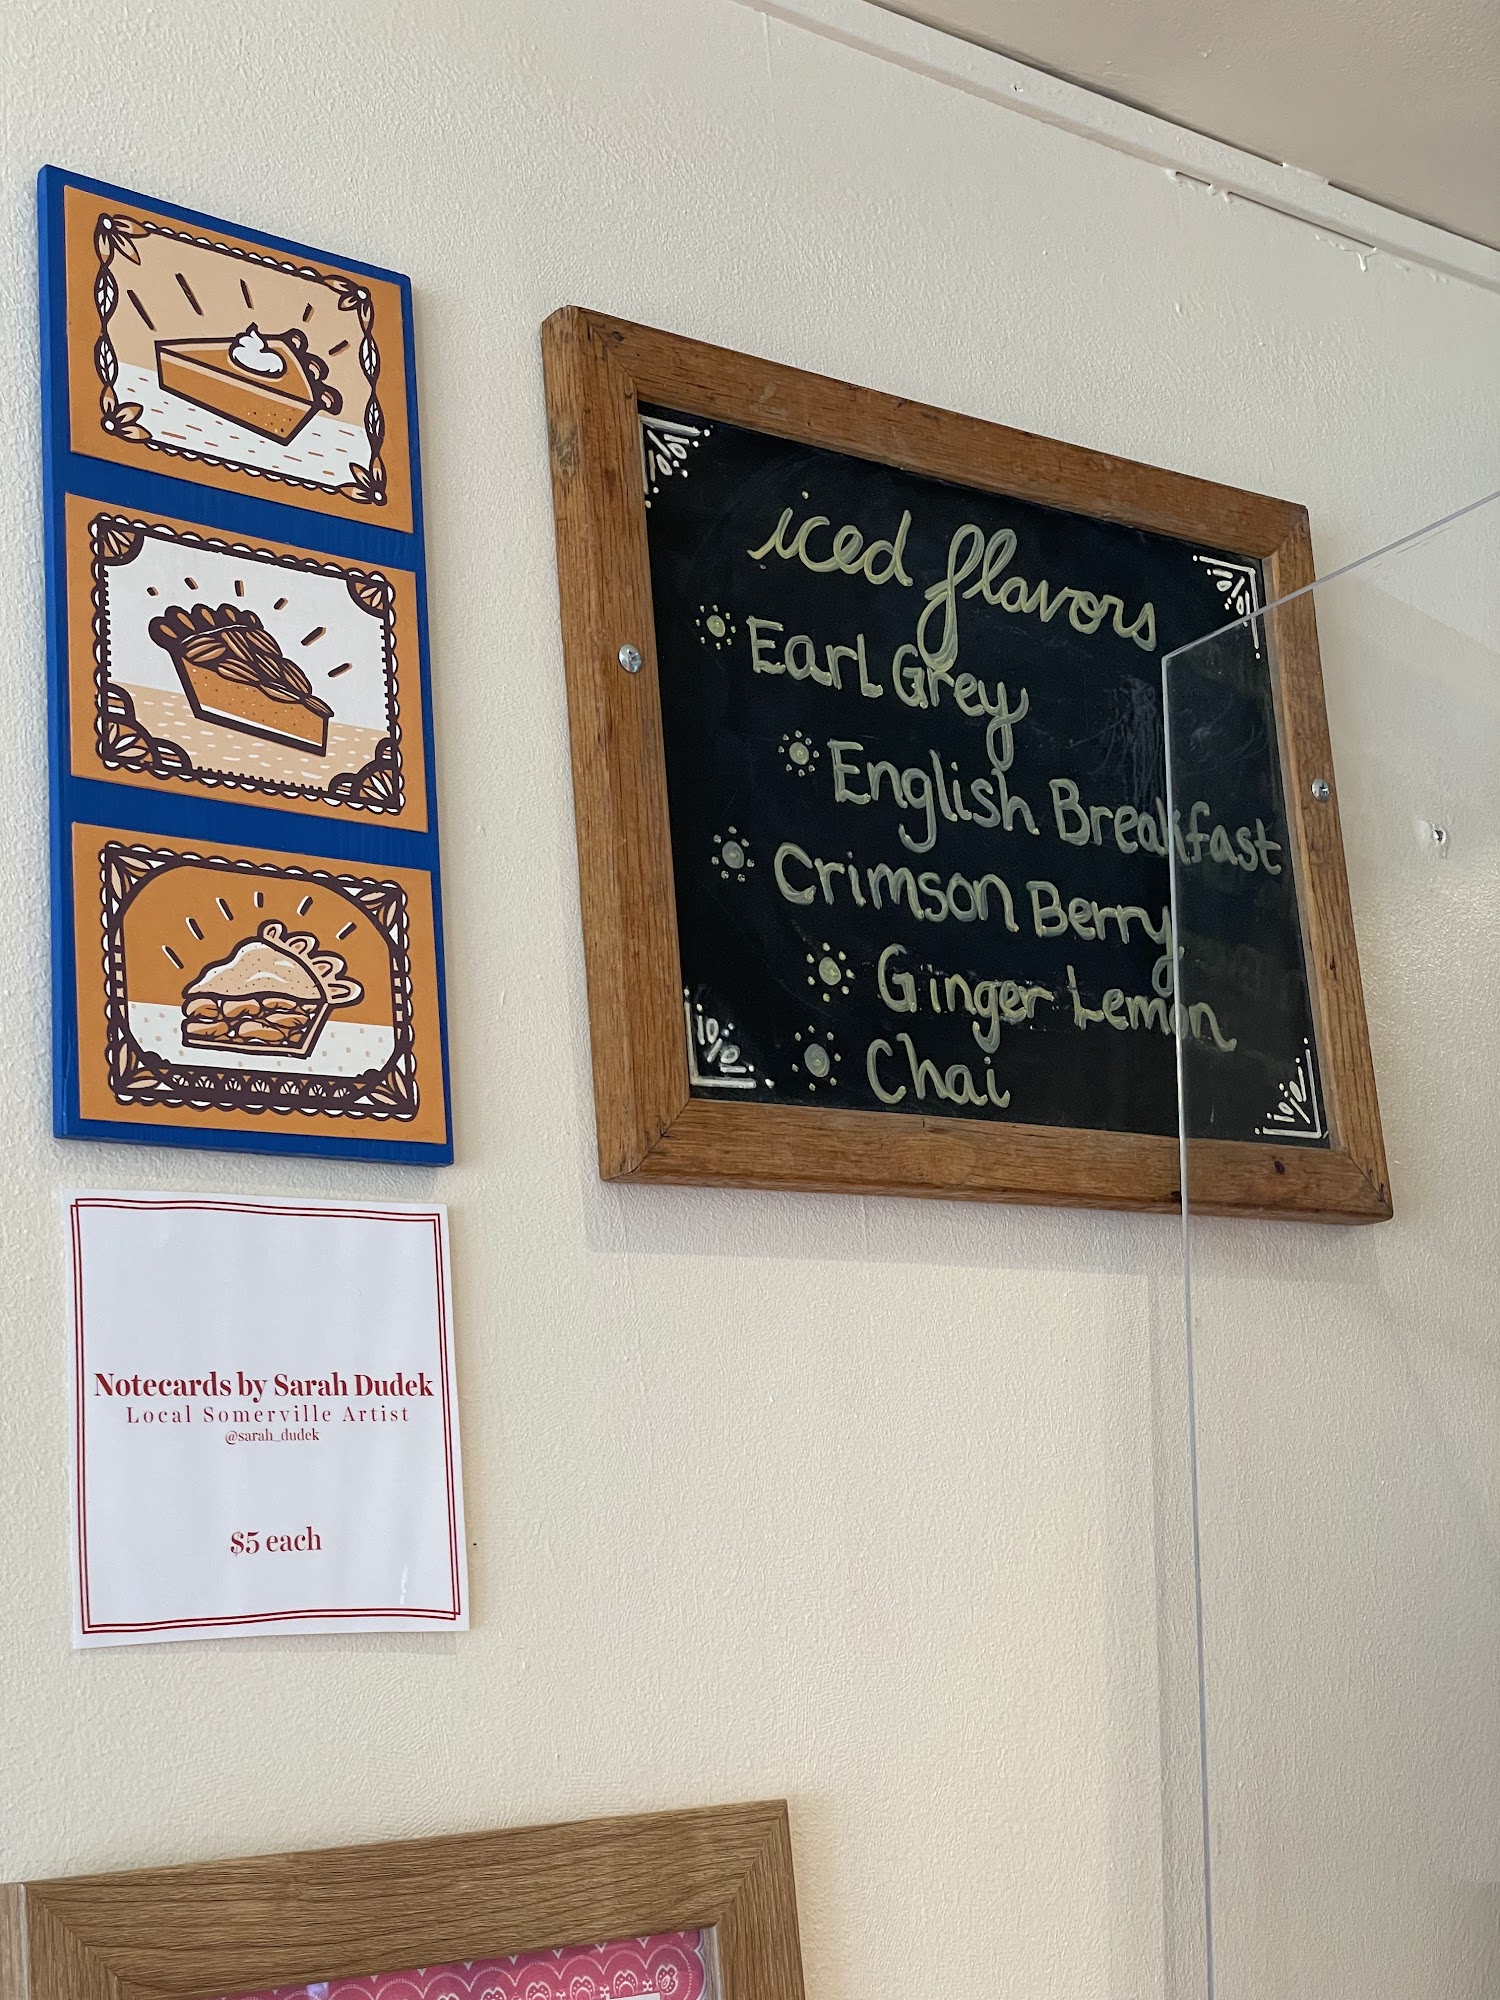 iced flavors
Earl Grey
English Breakfast
Crimson Berry
Ginger Lemon
Chai
Notecards by Sarah Dudek
Local Somerville Artist
@sarah_dudek
$5 each